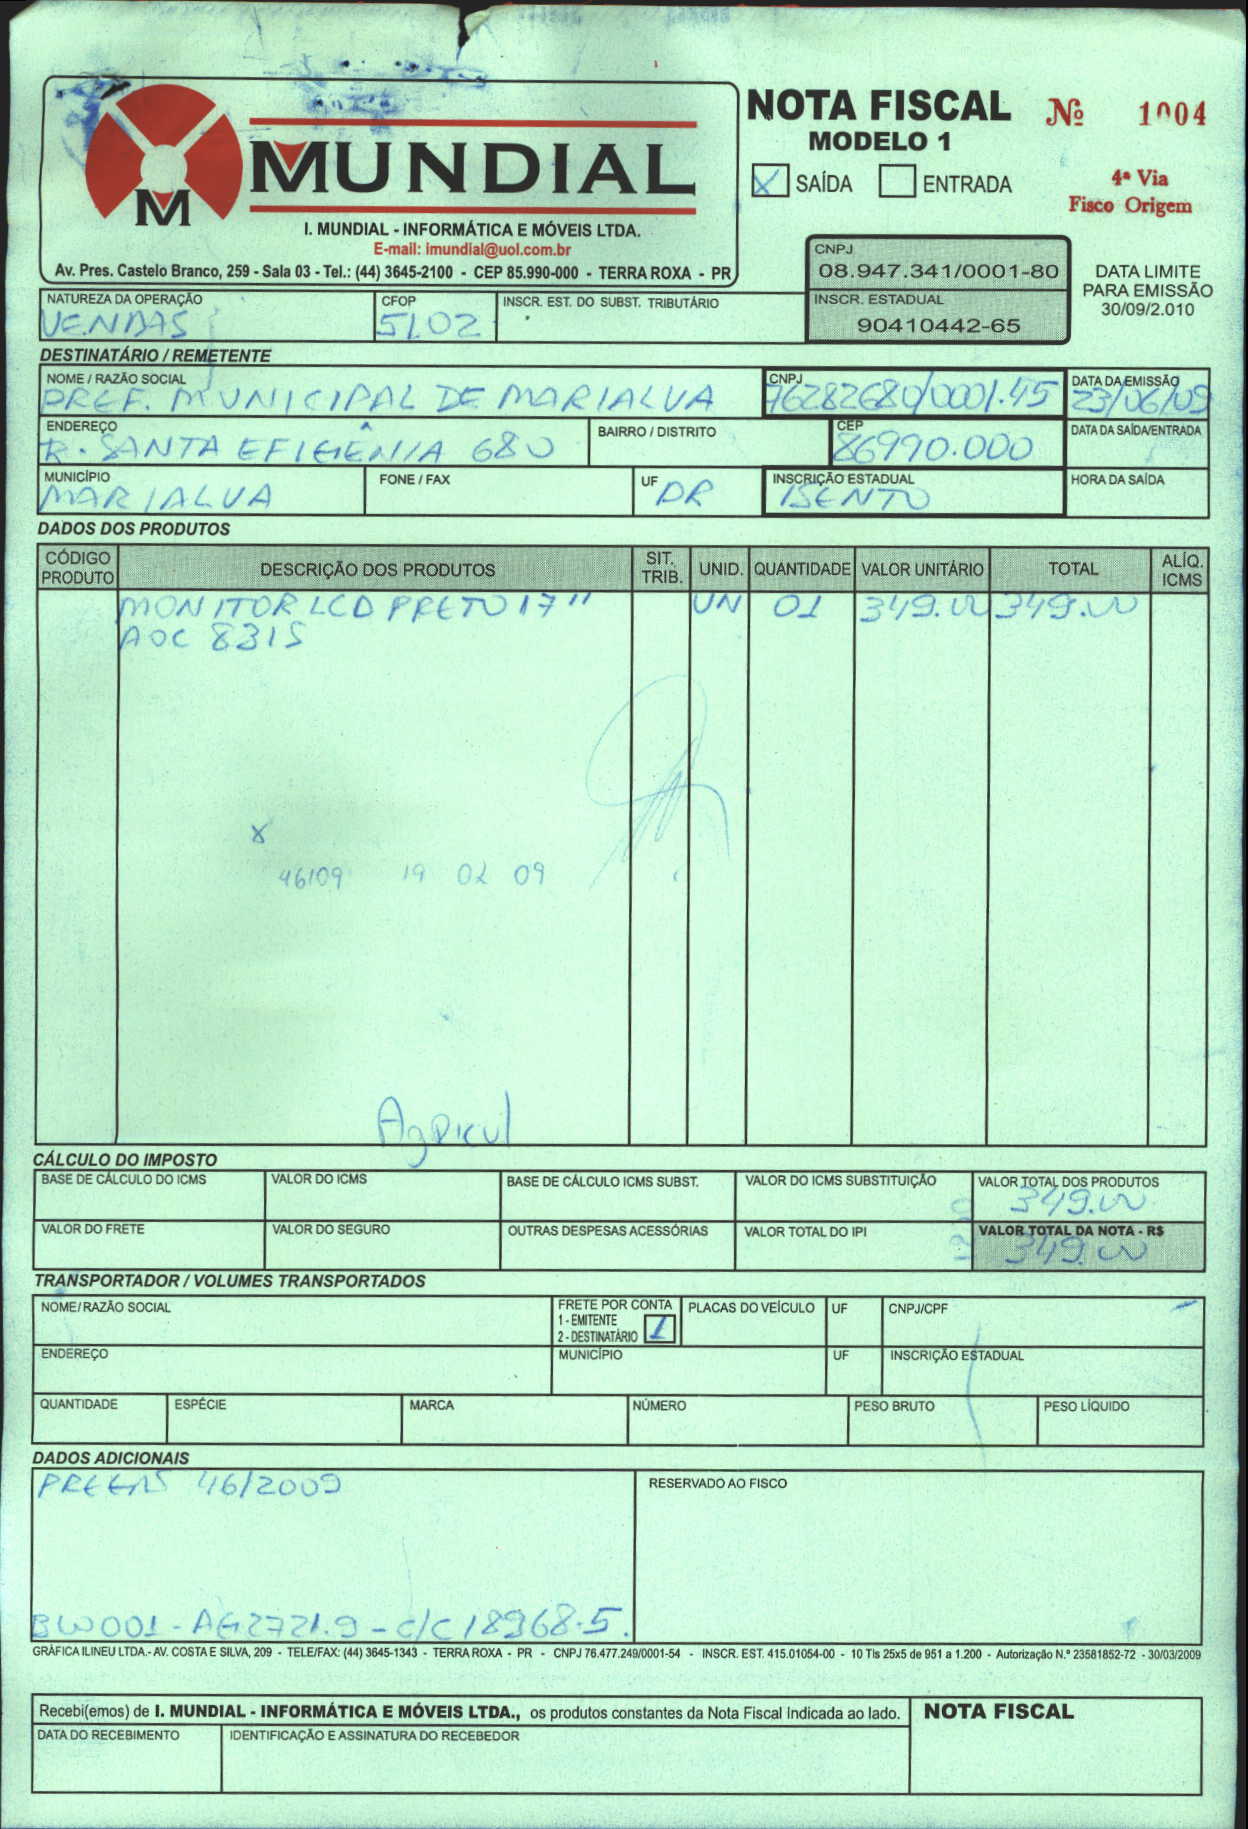 NOTA FISCAL Nº 1004
MODELO 1
SAÍDA ENTRADA
4ª Via
Fisco Origem
M
MUNDIAL
I. MUNDIAL - INFORMÁTICA E MÓVEIS LTDA.
E-mail: imundial@uol.com.br
Av. Pres. Castelo Branco, 259 - Sala 03 - Tel.: (44) 3645-2100 - CEP 85.990-000 - TERRA ROXA - PR
CNPJ
08.947.341/0001-80
INSCR. ESTADUAL
90410442-65
DATA LIMITE
PARA EMISSÃO
30/09/2.010
NATUREZA DA OPERAÇÃO CFOP INSCR. EST. DO SUBST. TRIBUTÁRIO
VENDAS 5102
DESTINATÁRIO / REMETENTE
NOME / RAZÃO SOCIAL CNPJ DATA DA EMISSÃO
PREF. MUNICIPAL DE MARIALVA 76282680/0001.45 23/06/09
ENDEREÇO BAIRRO / DISTRITO CEP DATA DA SAÍDA/ENTRADA
R. SANTA EFIGÊNIA 680 86990.000
MUNICÍPIO FONE / FAX UF INSCRIÇÃO ESTADUAL HORA DA SAÍDA
MARIALVA PR ISENTO
DADOS DOS PRODUTOS
CÓDIGO PRODUTO DESCRIÇÃO DOS PRODUTOS SIT. TRIB. UNID. QUANTIDADE VALOR UNITÁRIO TOTAL ALÍQ. ICMS
MONITOR LCD PRETO 17" UN 01 349.00 349.00
AOC 831S
x
46109 19 02 09
Agricul
CÁLCULO DO IMPOSTO
BASE DE CÁLCULO DO ICMS VALOR DO ICMS BASE DE CÁLCULO ICMS SUBST. VALOR DO ICMS SUBSTITUIÇÃO VALOR TOTAL DOS PRODUTOS
349.00
VALOR DO FRETE VALOR DO SEGURO OUTRAS DESPESAS ACESSÓRIAS VALOR TOTAL DO IPI VALOR TOTAL DA NOTA - R$
349.00
TRANSPORTADOR / VOLUMES TRANSPORTADOS
NOME/RAZÃO SOCIAL FRETE POR CONTA PLACAS DO VEÍCULO UF CNPJ/CPF
1 - EMITENTE
2 - DESTINATÁRIO 1
ENDEREÇO MUNICÍPIO UF INSCRIÇÃO ESTADUAL
QUANTIDADE ESPÉCIE MARCA NÚMERO PESO BRUTO PESO LÍQUIDO
DADOS ADICIONAIS
46/2009 RESERVADO AO FISCO
AG2721.9 - C/C 18968-5.
GRÁFICA ILINEU LTDA.- AV. COSTA E SILVA, 209 - TELE/FAX: (44) 3645-1343 - TERRA ROXA - PR - CNPJ 76.477.249/0001-54 - INSCR. EST. 415.01054-00 - 10 Tls 25x5 de 951 a 1.200 - Autorização N.º 23581852-72 - 30/03/2009
Recebi(emos) de I. MUNDIAL - INFORMÁTICA E MÓVEIS LTDA., os produtos constantes da Nota Fiscal Indicada ao lado. NOTA FISCAL
DATA DO RECEBIMENTO IDENTIFICAÇÃO E ASSINATURA DO RECEBEDOR